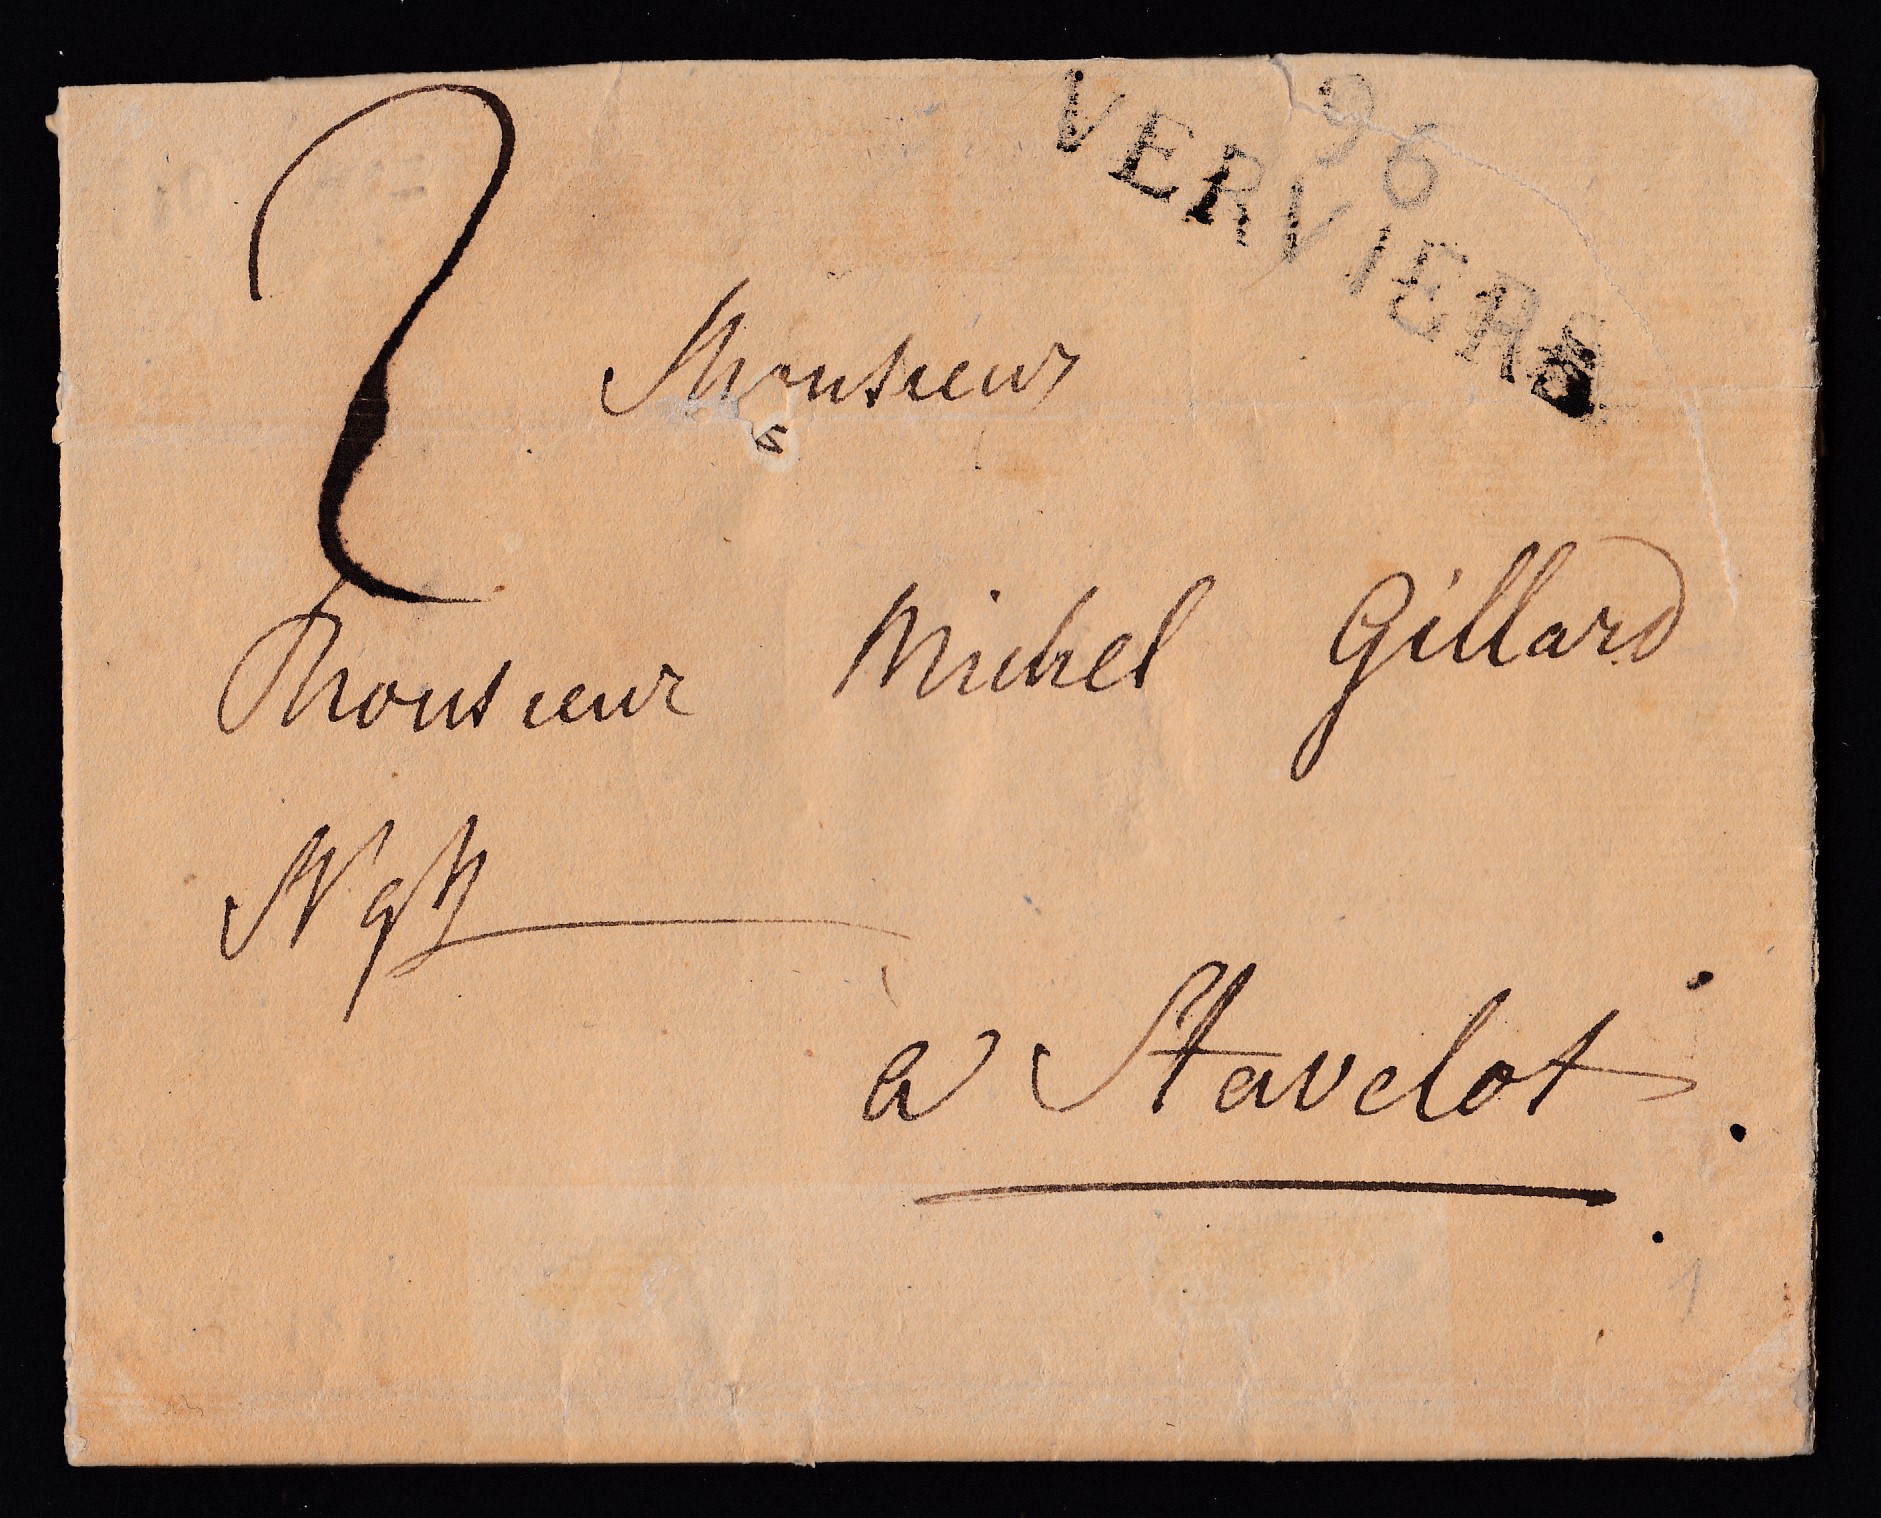 2
96
VERVIERS
Monsieur
Monsieur Michel Gillard
Ngt
à Stavelot
1